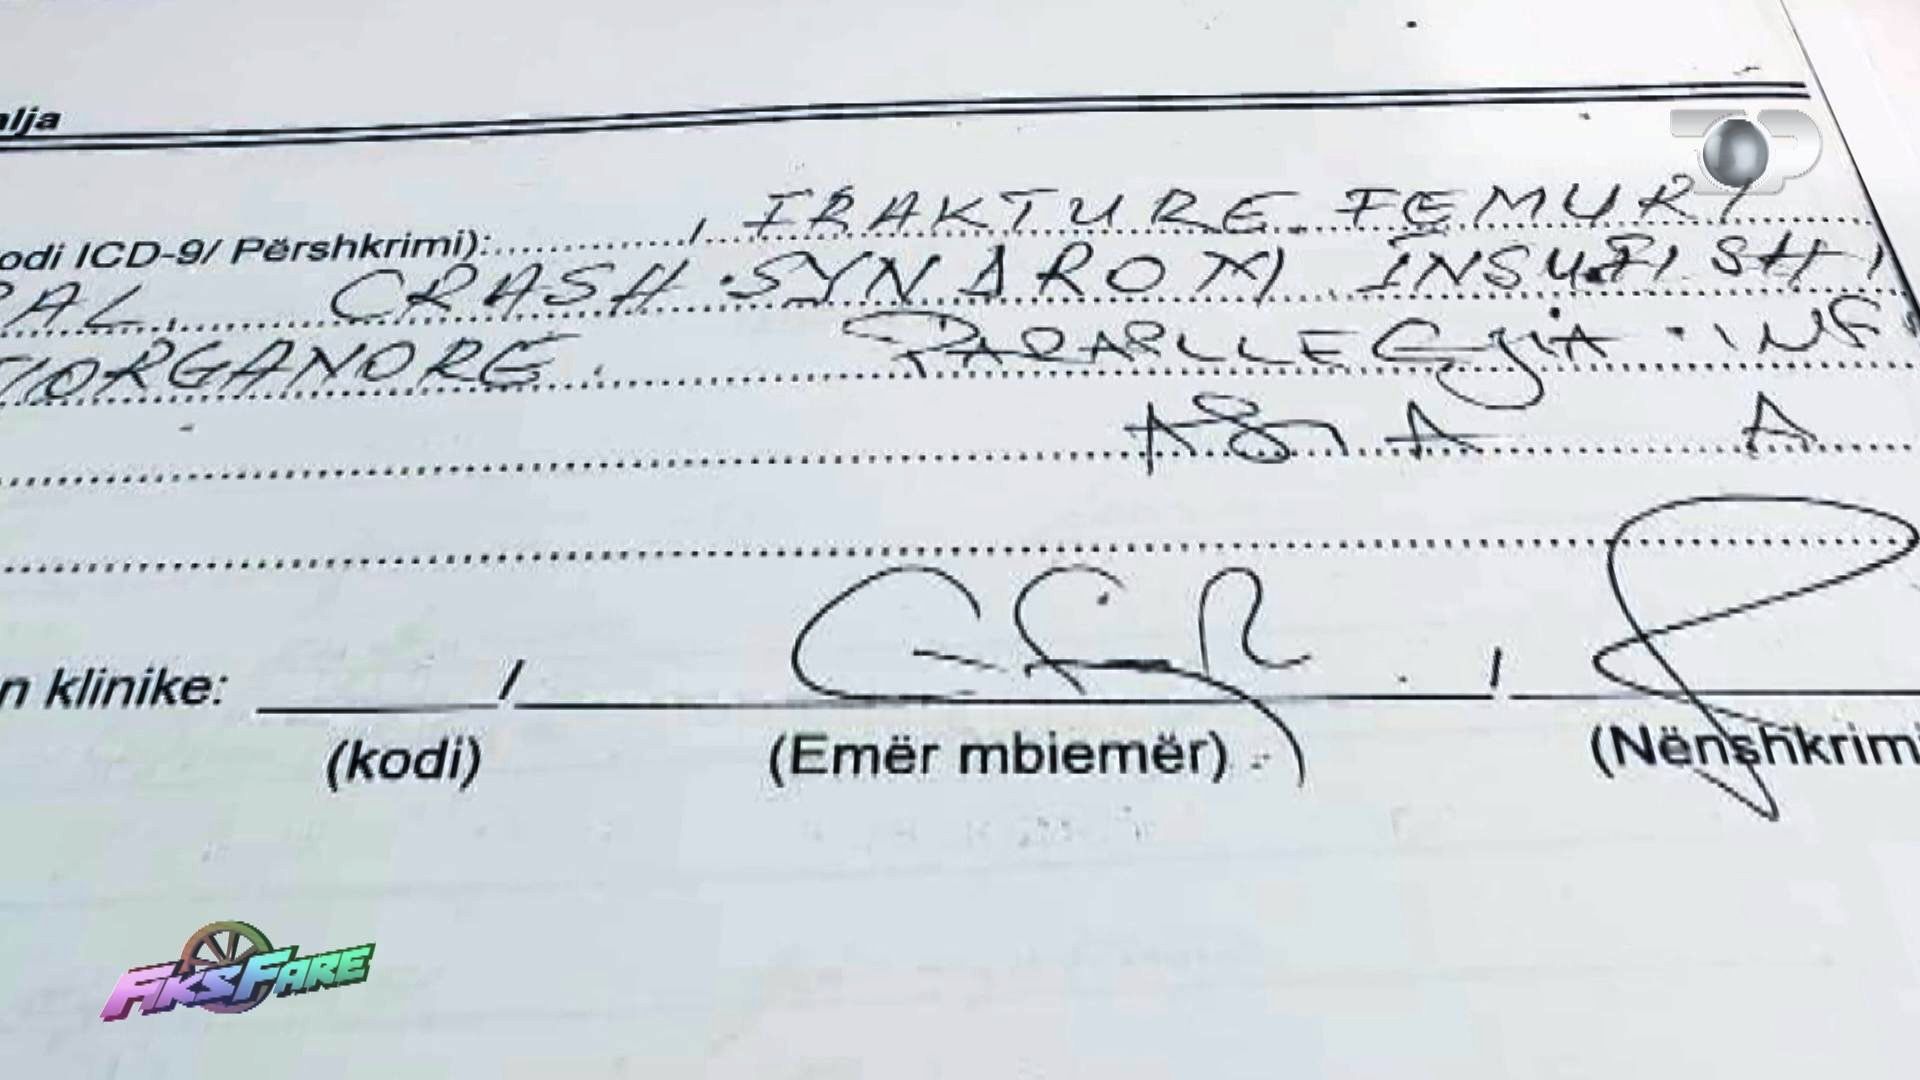 alja
odi ICD-9/ Përshkrimi): / FRAKTURE FEMURI
RAL. CRASH SYNDROM INSUFISHI
TIORGANORE. PARAPLLEGJIA INF
n klinike: / /
(kodi) (Emër mbiemër) (Nënshkrimi
TOP
FIKS FARE